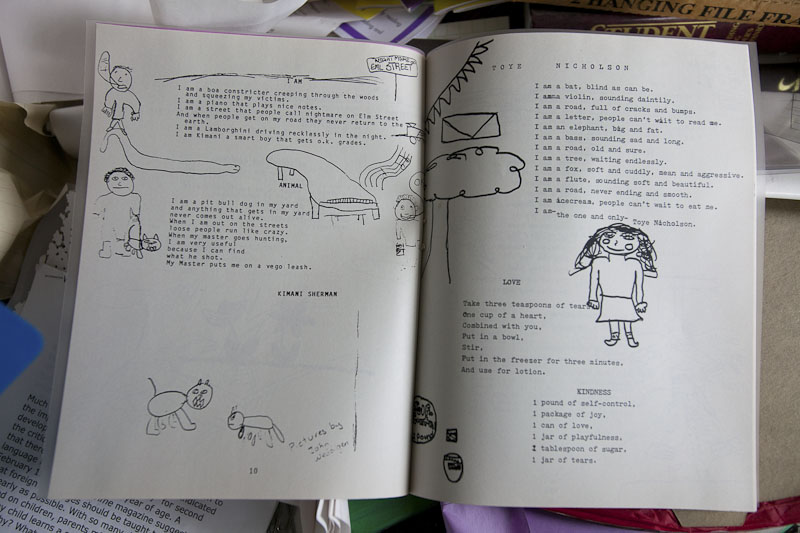 I AM
I am a boa constricter creeping through the woods
and squeezing my victims.
I am a piano that plays nice notes.
I am a street that people call nightmare on Elm Street
And when people get on my road they never return to the
earth.
I am a Lamborghini driving recklessly in the night.
I am Kimani a smart boy that gets o.k. grades.
STREET
ANIMAL
I am a pit bull dog in my yard
and anything that gets in my yard
never comes out alive.
When I am out on the streets
loose people run like crazy.
When my master goes hunting,
I am very useful
because I can find
what he shot.
My Master puts me on a vego leash.
KIMANI SHERMAN
Pictures by
John
10
TOYE NICHOLSON
I am a bat, blind as can be.
I am a violin, sounding daintily.
I am a road, full of cracks and bumps.
I am a letter, people can't wait to read me.
I am an elephant, big and fat.
I am a bass, sounding sad and long.
I am a road, old and sure.
I am a tree, waiting endlessly.
I am a fox, soft and cuddly, mean and aggressive.
I am a flute, sounding soft and beautiful.
I am a road, never ending and smooth.
I am icecream, people can't wait to eat me.
I am the one and only Toye Nicholson.
LOVE
Take three teaspoons of tears
One cup of a heart,
Combined with you,
Put in a bowl,
Stir,
Put in the freezer for three minutes,
And use for lotion.
KINDNESS
1 pound of self-control,
1 package of joy,
1 can of love,
1 jar of playfulness,
1 tablespoon of sugar,
1 jar of tears.
HANGING FILE FRA
STUDENT
Much
the im
develop
the critic
that then
language
February 1
at foreign
early as possible.
ges should be taught
on children, parents
y child learns a
With so many
year of age. A
the magazine sugges
for second
dicated